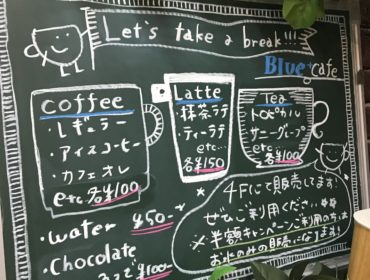 Let's take a break!!!
Blue+cafe
coffee
・レギュラー
・アイスコーヒー
・カフェオレ
etc. 各¥100
Latte
・抹茶ラテ
・ティーラテ
etc…
各¥150
Tea
・トロピカル
・サニーグレープ
etc…
各¥100
・water ¥50-
・Chocolate
¥100-
4Fにて販売してます!
ぜひご利用ください
※半額キャンペーンご利用の方は
お水のみの販売になります!